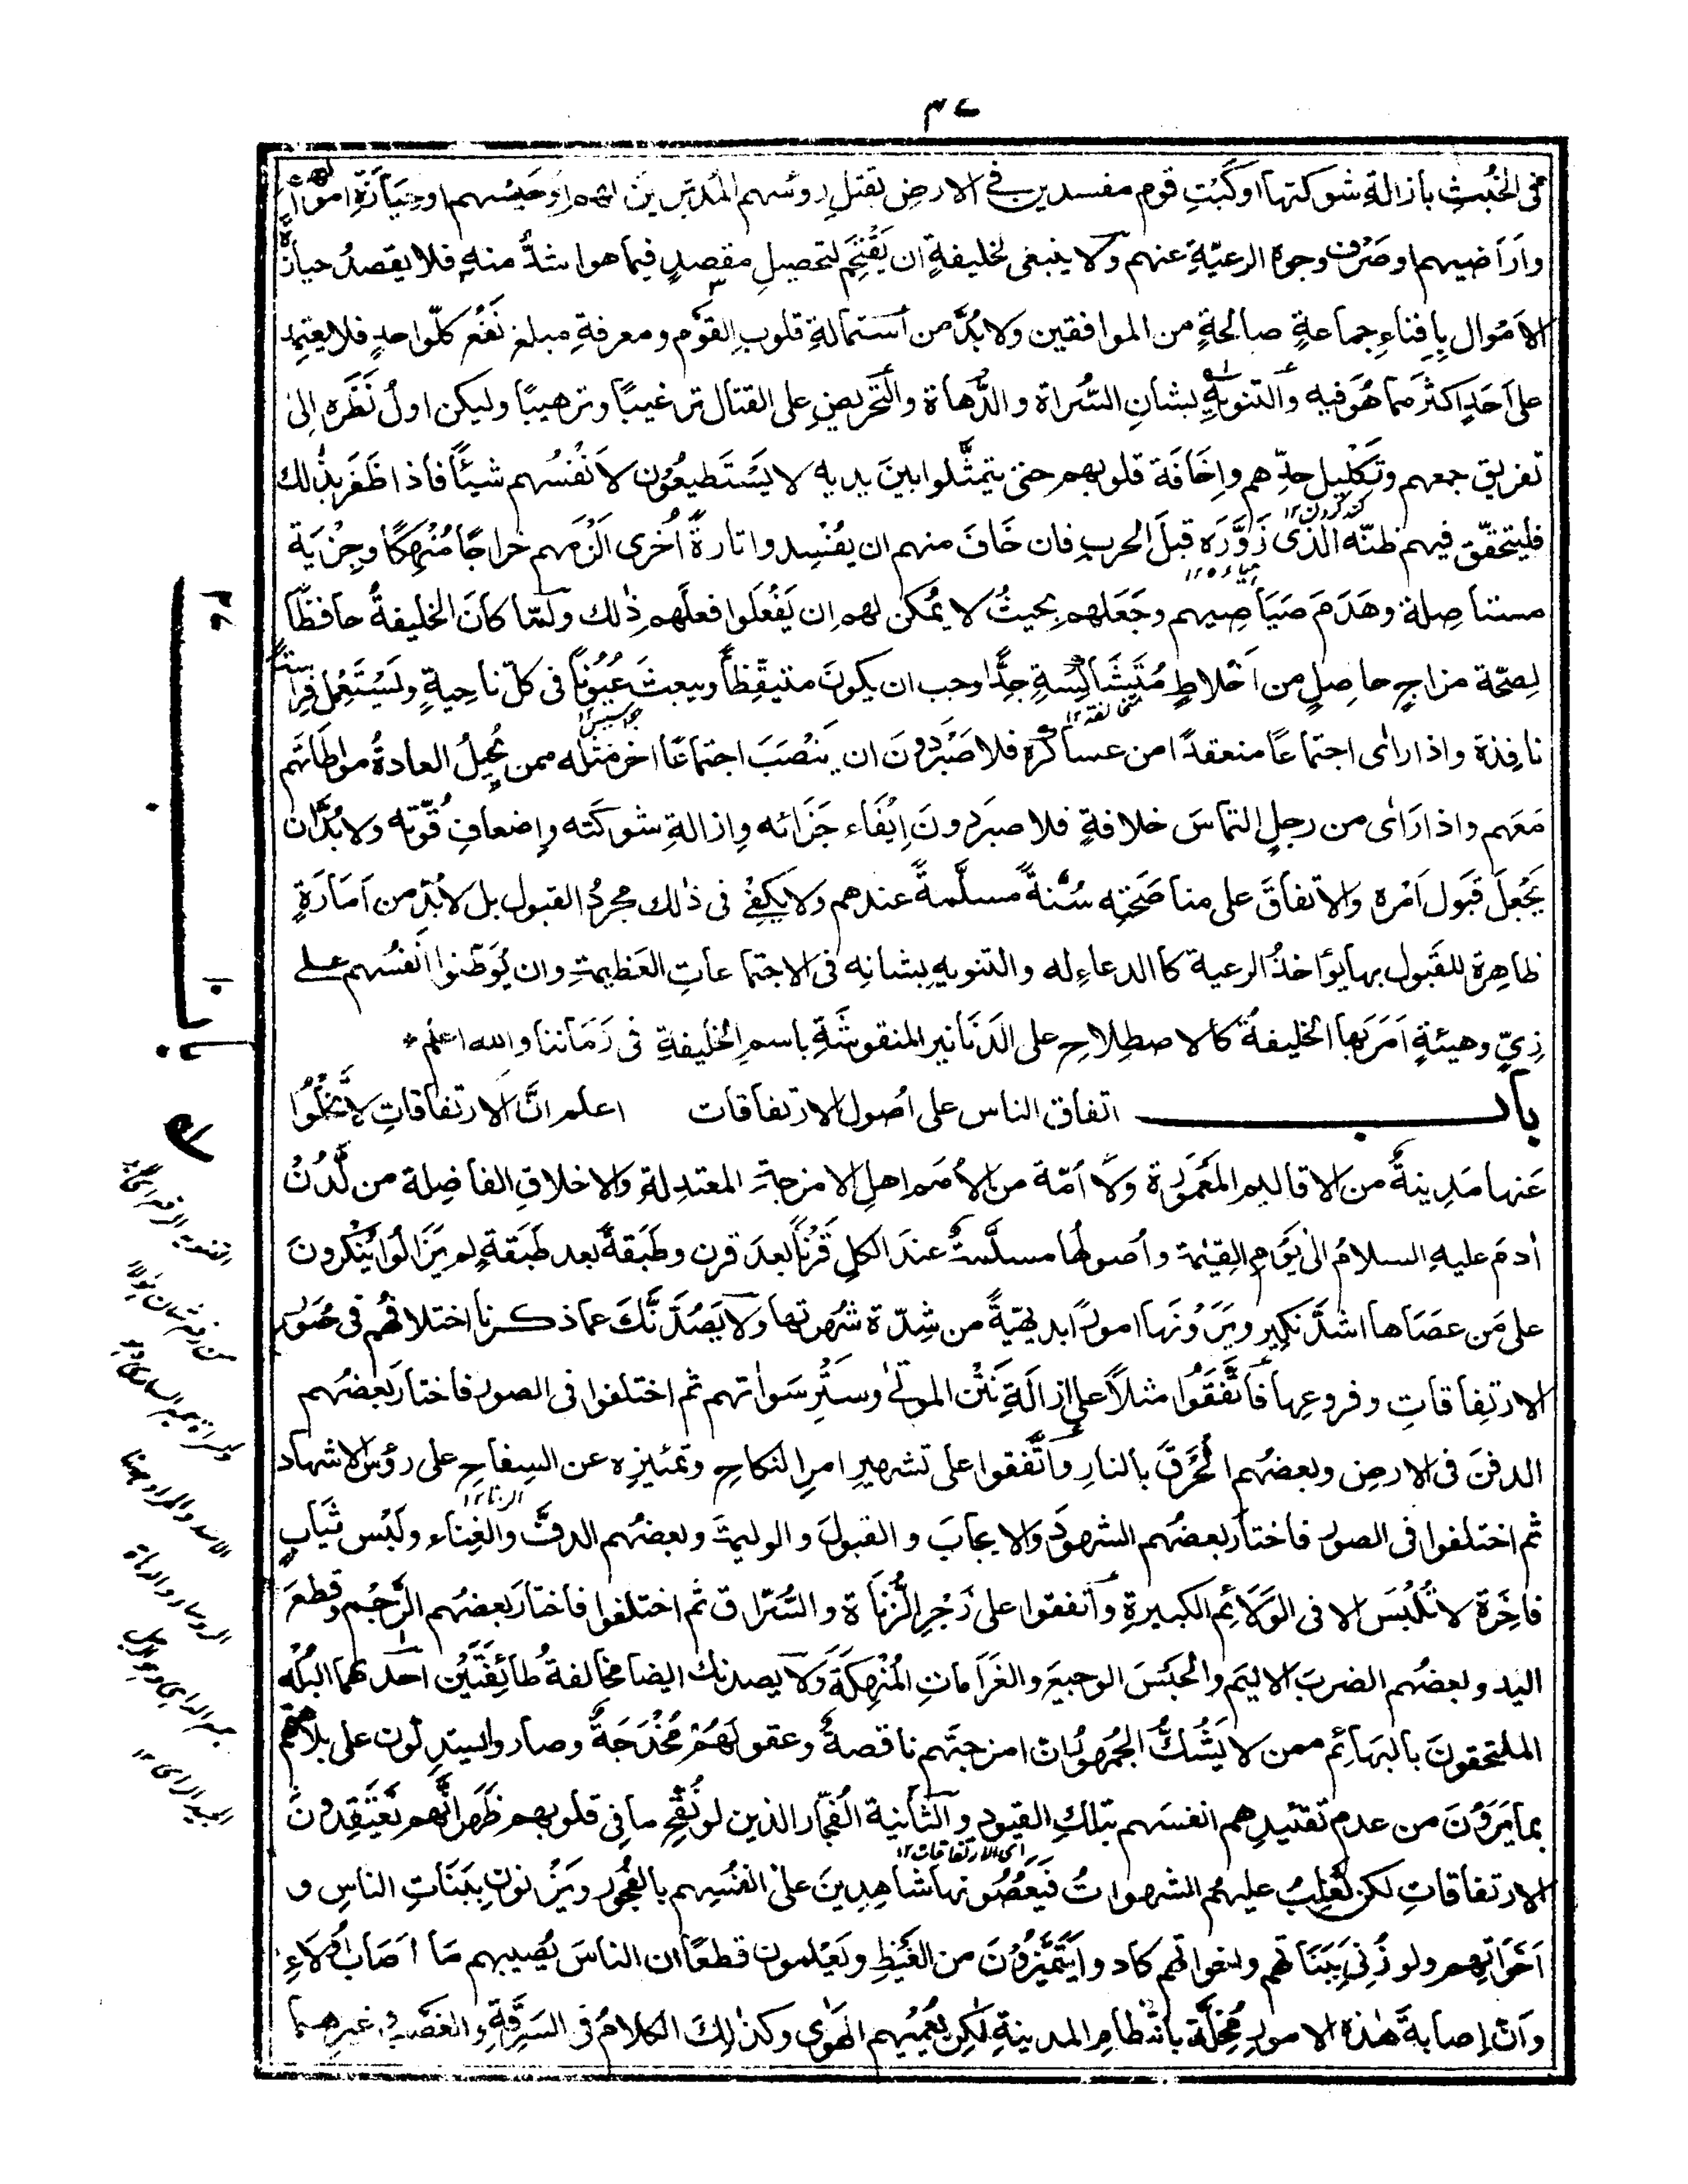 ٤٧
فى الخُبثِ بازالةِ شوكتها اوكَبْتِ قوم مفسدين فى الارضِ بقتلِ رءوسهم المُدَبّرِينَ لهم اوحَبْسهم اوحِيَازَةِ اموالهم
وارَاضيهم اوصَرْفِ وجوه الرعيّةِ عنهم ولاينبغى لخليفةٍ ان يَقْتَحِمَ لتحصيلِ مقصدٍ فيما هو اشدُّ منه فلايقصدُ حيازة
الاموال بِاِفناءِ جماعةٍ صالحةٍ من الموافقين ولابُدَّ من استمالةِ قلوبِ القوم ومعرفةِ مبلغ نَفْعِ كلّ واحدٍ فلايعتمِد
على اَحَدٍ اكثرَ مما هُوَ فيه والتنويهِ بشانِ السُّراة والدُّهاة والتحريضِ على القتال ترغيبًا وترهيبًا وليكن اولُ نَظَرِه الى
تفريق جمعهم وتَكْلِيل حدِّهم واِخَافَة قلوبهم حتى يتمثَّلوا بينَ يديه لا يَسْتَطيعُوْن لاَنْفُسهم شيئًا فاذا ظَفَرَ بذٰلك
كند كردن ١٢
فليتحقّق فيهم ظنّه الذى زَوَّرَه قبلَ الحربِ فان خَافَ منهم ان يفْسِدوا تارةً اُخرى اَلْزَمهم خراجًا مُنْهِكًا وجِزْيَة
مستاصِلة وهَدَمَ صَيَاصِيهم وجَعَلهم بحيثُ لا يمُكن لهم ان يَفْعَلوا فعلَهم ذٰلك ولمّا كانَ الخليفةُ حافظًا
لِصحّة مزاجٍ حاصِلٍ من اَخْلاطٍ مُتَشَاكِسَةٍ جِدًّا وجب ان يكونَ متيقّظًا ويبعثَ عُيُوْنًا فى كلّ ناحِيةٍ ويَسْتَعْمل فِراسةً
متخالفة ١٢ جواسيس ١٢
نافِذة واذاراٰى اجتماعًا منعقدًا من عساكره فلاصَبْرَ دُونَ ان يَنْصَبَ اجتماعًا اٰخر مثلَه ممن تُحِيلُ العادةُ مواطاتهم
مَعَهم واذارَاٰى من رجلٍ التماسَ خلافةٍ فلاصبرَ دونَ اِيْفَاء جَزَائه واِزالةِ شوكَته واِضعافِ قُوّته ولابُدَّان
يَجْعَلَ قَبَول اَمْره والاتفاقَ على مناصَحَتِه سُنّةً مسلَّمةً عندهم ولايَكفِىْ فى ذٰلك مجردُ القبول بل لابُدّ من اَمَارَةٍ
ظاهِرةٍ للقَبول بها يؤاخذُ الرعية كالدعاءِ له والتنويهِ بشانِه فى الاجتماعاتِ العَظيمةِ وان يُوَطّنوا انفُسهم على
زِىٍّ وهيئةٍ اَمَرَ بها الخليفةُ كالاصطِلاحِ على الدَنانير المنقوشَةِ باسمِ الخليفةِ فى زَمَاننا والله اعلم *
باب اتفاق الناس على اصُول الارتفاقات اعلم انّ الارتفاقاتِ لاتَخْلُوا
عَنها مَدِينةٌ من الاقاليم المَعْمُورة ولا اُمّة من الاُمم اهلِ الامزجةِ المعتدِلةِ والاخلاقِ الفاضِلة من لَّدُنْ
اٰدمَ عليهِ السلامُ الىٰ يَوْمِ القِيٰمة واُصولُها مسلَّمةٌ عندَ الكلِ قَرْنًا بعدَ قرن وطَبَقَةً بعد طَبَقَةٍ لم يَزَالُوا يُنكِرونَ
على مَن عصَاها اشدَّ نَكِيرٍ ويَرَوْنَها امورًا بديهيّةً من شِدّة شُهرتها ولايَصُدَّنَّكَ عما ذكرنا اختلافُهم فى صُوَرِ
الارتِفاقاتِ وفروعِها فاتَّفَقُوا مثلاً على ازالَةِ نَتْنِ الموتىٰ وسَتْرِ سَواٰتهم ثم اختلفوا فى الصور فاختارَ بعضُهم
الدفنَ فى الارضِ وبعضُهم الحَرْقَ بالنارِ واتَّفقوا على تشهيرِ امرِ النكاحِ وتمييزِه عن السِفاحِ على رؤس الاشهاد
الزنا ١٢
ثم اختلفوا فى الصور فاختار بعضُهم الشهودَ والايجابَ و القبولَ و الوليمةَ وبعضُهم الدفَّ والغِناء ولُبْس ثيَابٍ
فاخِرَة لاتُلْبَسُ الا فى الوَلَائمِ الكبيرةِ واتفقوا على زَجْرِ الزُّنَاة والسُّرّاق ثم اختلفوا فاختارَ بعضُهم الرَّجْمَ وقطعَ
اليد وبعضُهم الضربَ الاليمَ والحَبْسَ الوجيعَ والغَرَاماتِ المُنْهِكَةَ ولايصدنك ايضا مخالفةُ طائِفَتَيْن احدٰهما البُلْه
الملتحقونَ بالبهائم ممن لايَشُكُّ الجُمهورُ ان امزجتَهم ناقصةٌ وعقولَهُمْ مُخْدَجَةٌ وصاروا يستدِلون على بلاهتهم
بما يَرَوْنَ من عدم تقييدِهم انفسَهم بتلكِ القيودِ والثانية الفُجّار الذين لو نُقّحَ ما فى قلوبهم ظَهَرَ انّهم يَعْتَقِدونَ
اى الارتفاقات ١٢
الارتفاقاتِ لكن تَغلِبُ عليهُمُ الشهواتُ فيَعصُونها شاهِدِينَ علىٰ انفُسِهم بالفُجُورِ ويَزْنونَ بِبَنَاتِ الناسِ و
اَخَوَاتِهم ولو زُنِىَ بِبَنَاتهم واخواتهم كادوا يَتَمَيَّزُوْنَ من الغَيْظِ ويَعْلمون قطعًا ان الناسَ يُصيبهم مَا اَصَابَ اُولاءِ
واَنّ اِصابةَ هٰذه الامورِ مُخِلَّةٌ بانْتظامِ المدينةِ لكِن يُعْمِيهم الهَوٰى وكذٰلِكَ الكلامُ فى السَرِقَةِ والغَصَبِ وغيرِهما